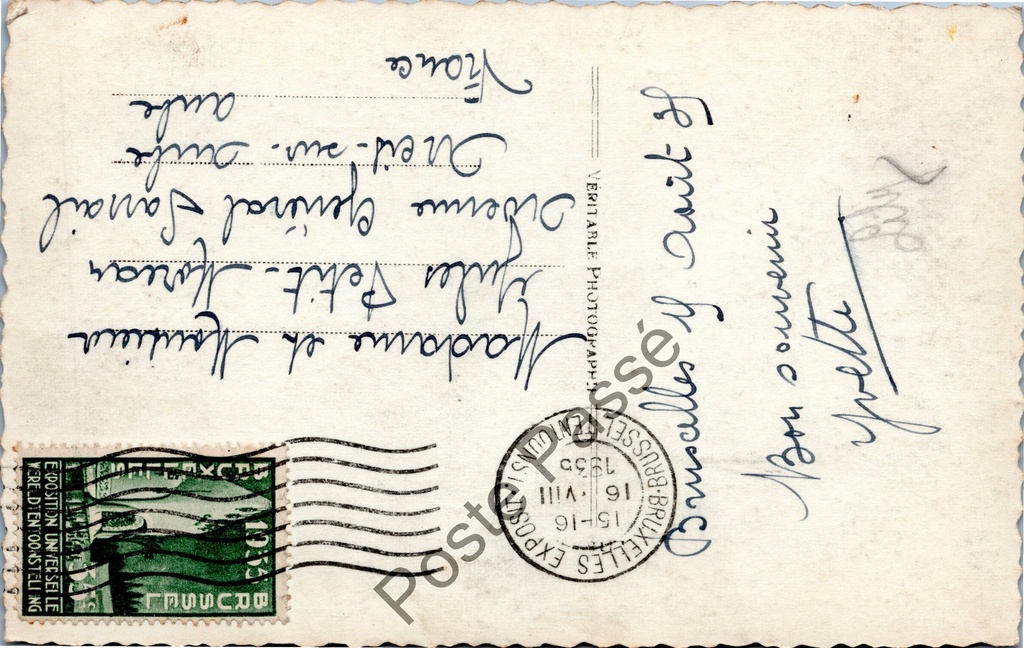 Bruxelles
Août 35
Bon souvenir
Yvette
VÉRITABLE PHOTOGRAPHIE
Madame et Monsieur
Jules Petit-Moreau
Avenue Général Sarrail
Arcis-sur-Aube
Aube
France
BRUXELLES EXPOSITION
BRUSSEL TENTOONST
15-16
16 VIII
1935
BRUXELLES
1935
BRUSSEL
EXPOSITION UNIVERSELLE
WERELDTENTOONSTELLING
35c
Poste Passé